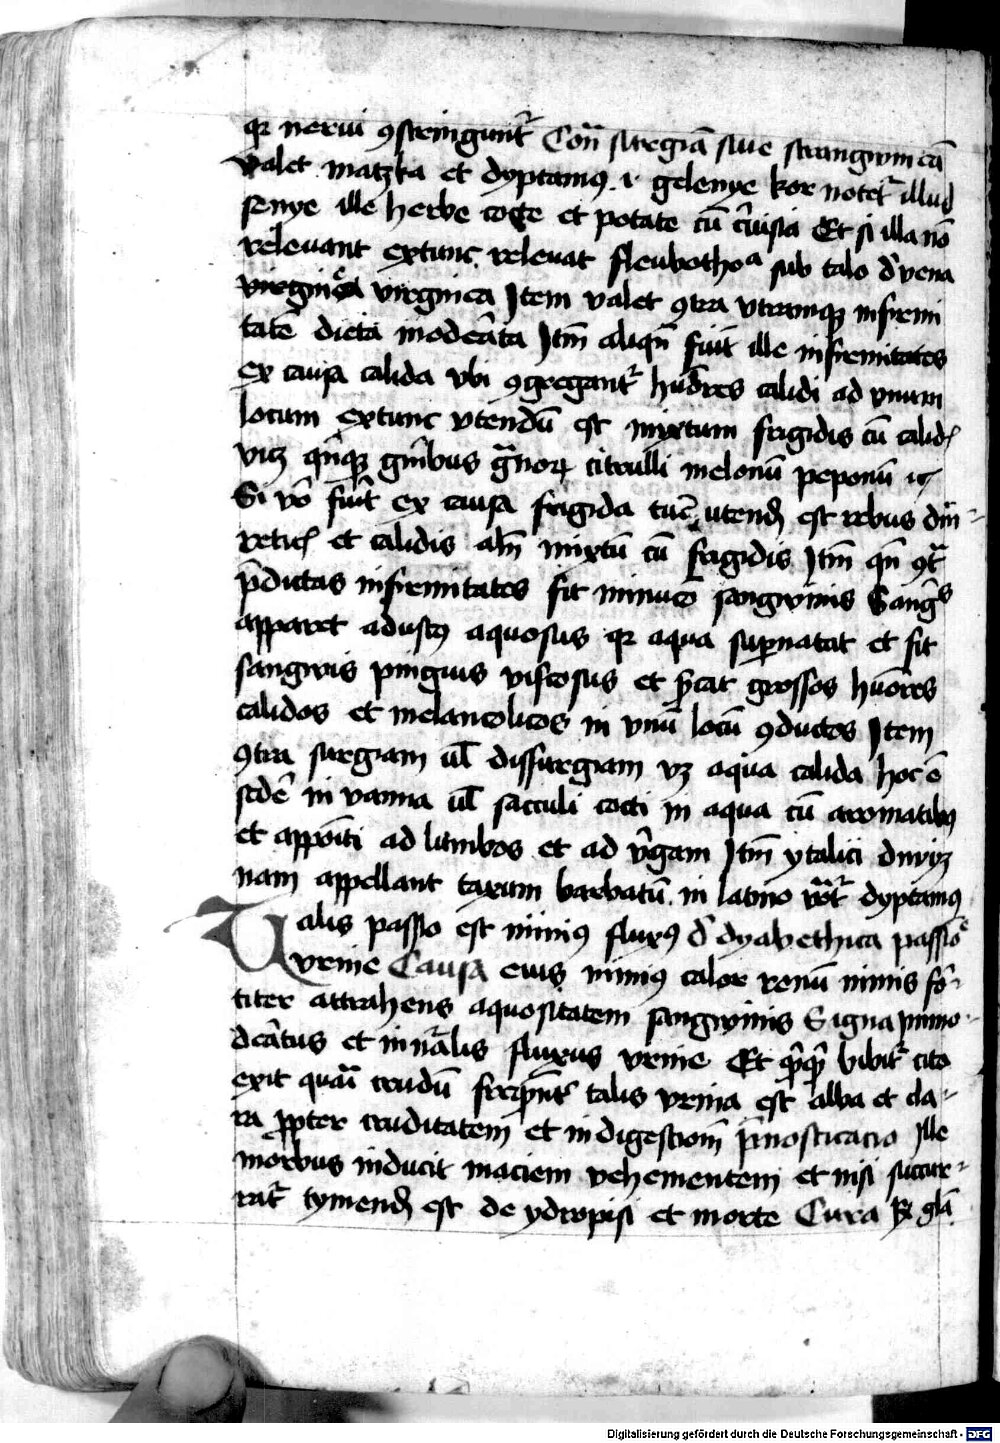 qr nerui ꝯstringunt᷑ Cont̄ª sṫregiā siue strangwiriā
valet matzka et dyptamꝰ .i. gelenye kor notet᷑ illud
senye ille herbe cocte et potate cū c̄uisia Et si illa nō
releuant extunc releuat fleubothoª sub talo d̄ vena
virginea virginica Jtem valet ꝯtra vtramqꝫ infirmi
tatē dieta moderata Jtm̄ aliqn̄ fiūt ille infirmitates
ex causa calida vbi ꝯgregant᷑ hūores calidi ad vnum
locum extunc vtendū est mixtum frigidis cū calid
vitꝫ gn̄ibus g̃norꝝ citrulli melonū peponū ⁊c
Si v̊o fiūt ex causa frigida tūc utend est rebus diu-
retic et calidis aln̄ mixtū cū frigidis Jtm̄ qn̄ ꝯtª
p̄dictas infirmitates fit minuco sangwinis Sangˢ
apparet adustꝰ aquosus qr aqua sup̄natat et fit
sangwis pinguis viscosus et p̄cat grossos hūores
calidos et melancolicos in vnū locū ꝯductos Jtem
ꝯtra sturgiam ul̄ dissurgiam vꝫ aqua calida hoc ē
sedē in vanna ul̄ sacculi cocti in aqua cū aromatibꝰ
et appōiti ad lumbos et ad v̄gam Jtm̄ ytalici
nam appellant taxum barbatū in latino voc̄at᷑ dyptamꝰ
Talis passio est nimiꝰ fluxꝰ d̄ dyabethica passioē
vrine Causa eius nimiꝰ calor renū nimis for-
titer attrahens aquositatem sangwinis Signa immo-
deratus et innªlis fluxus vrine Et qͥcqͥd bibit᷑ cito
exit quasi crudū talis vrina est alba et cla-
ra ꝓpter cruditatem et indigestionē p̄nosticacio Jlle
morbus inducit maciem vehementem et nisi succur-
rat᷑ tymend est de ydropisi et morte Cura ℞ glā
Digitalisierung gefördert durch die Deutsche Forschungsgemeinschaft - DFG